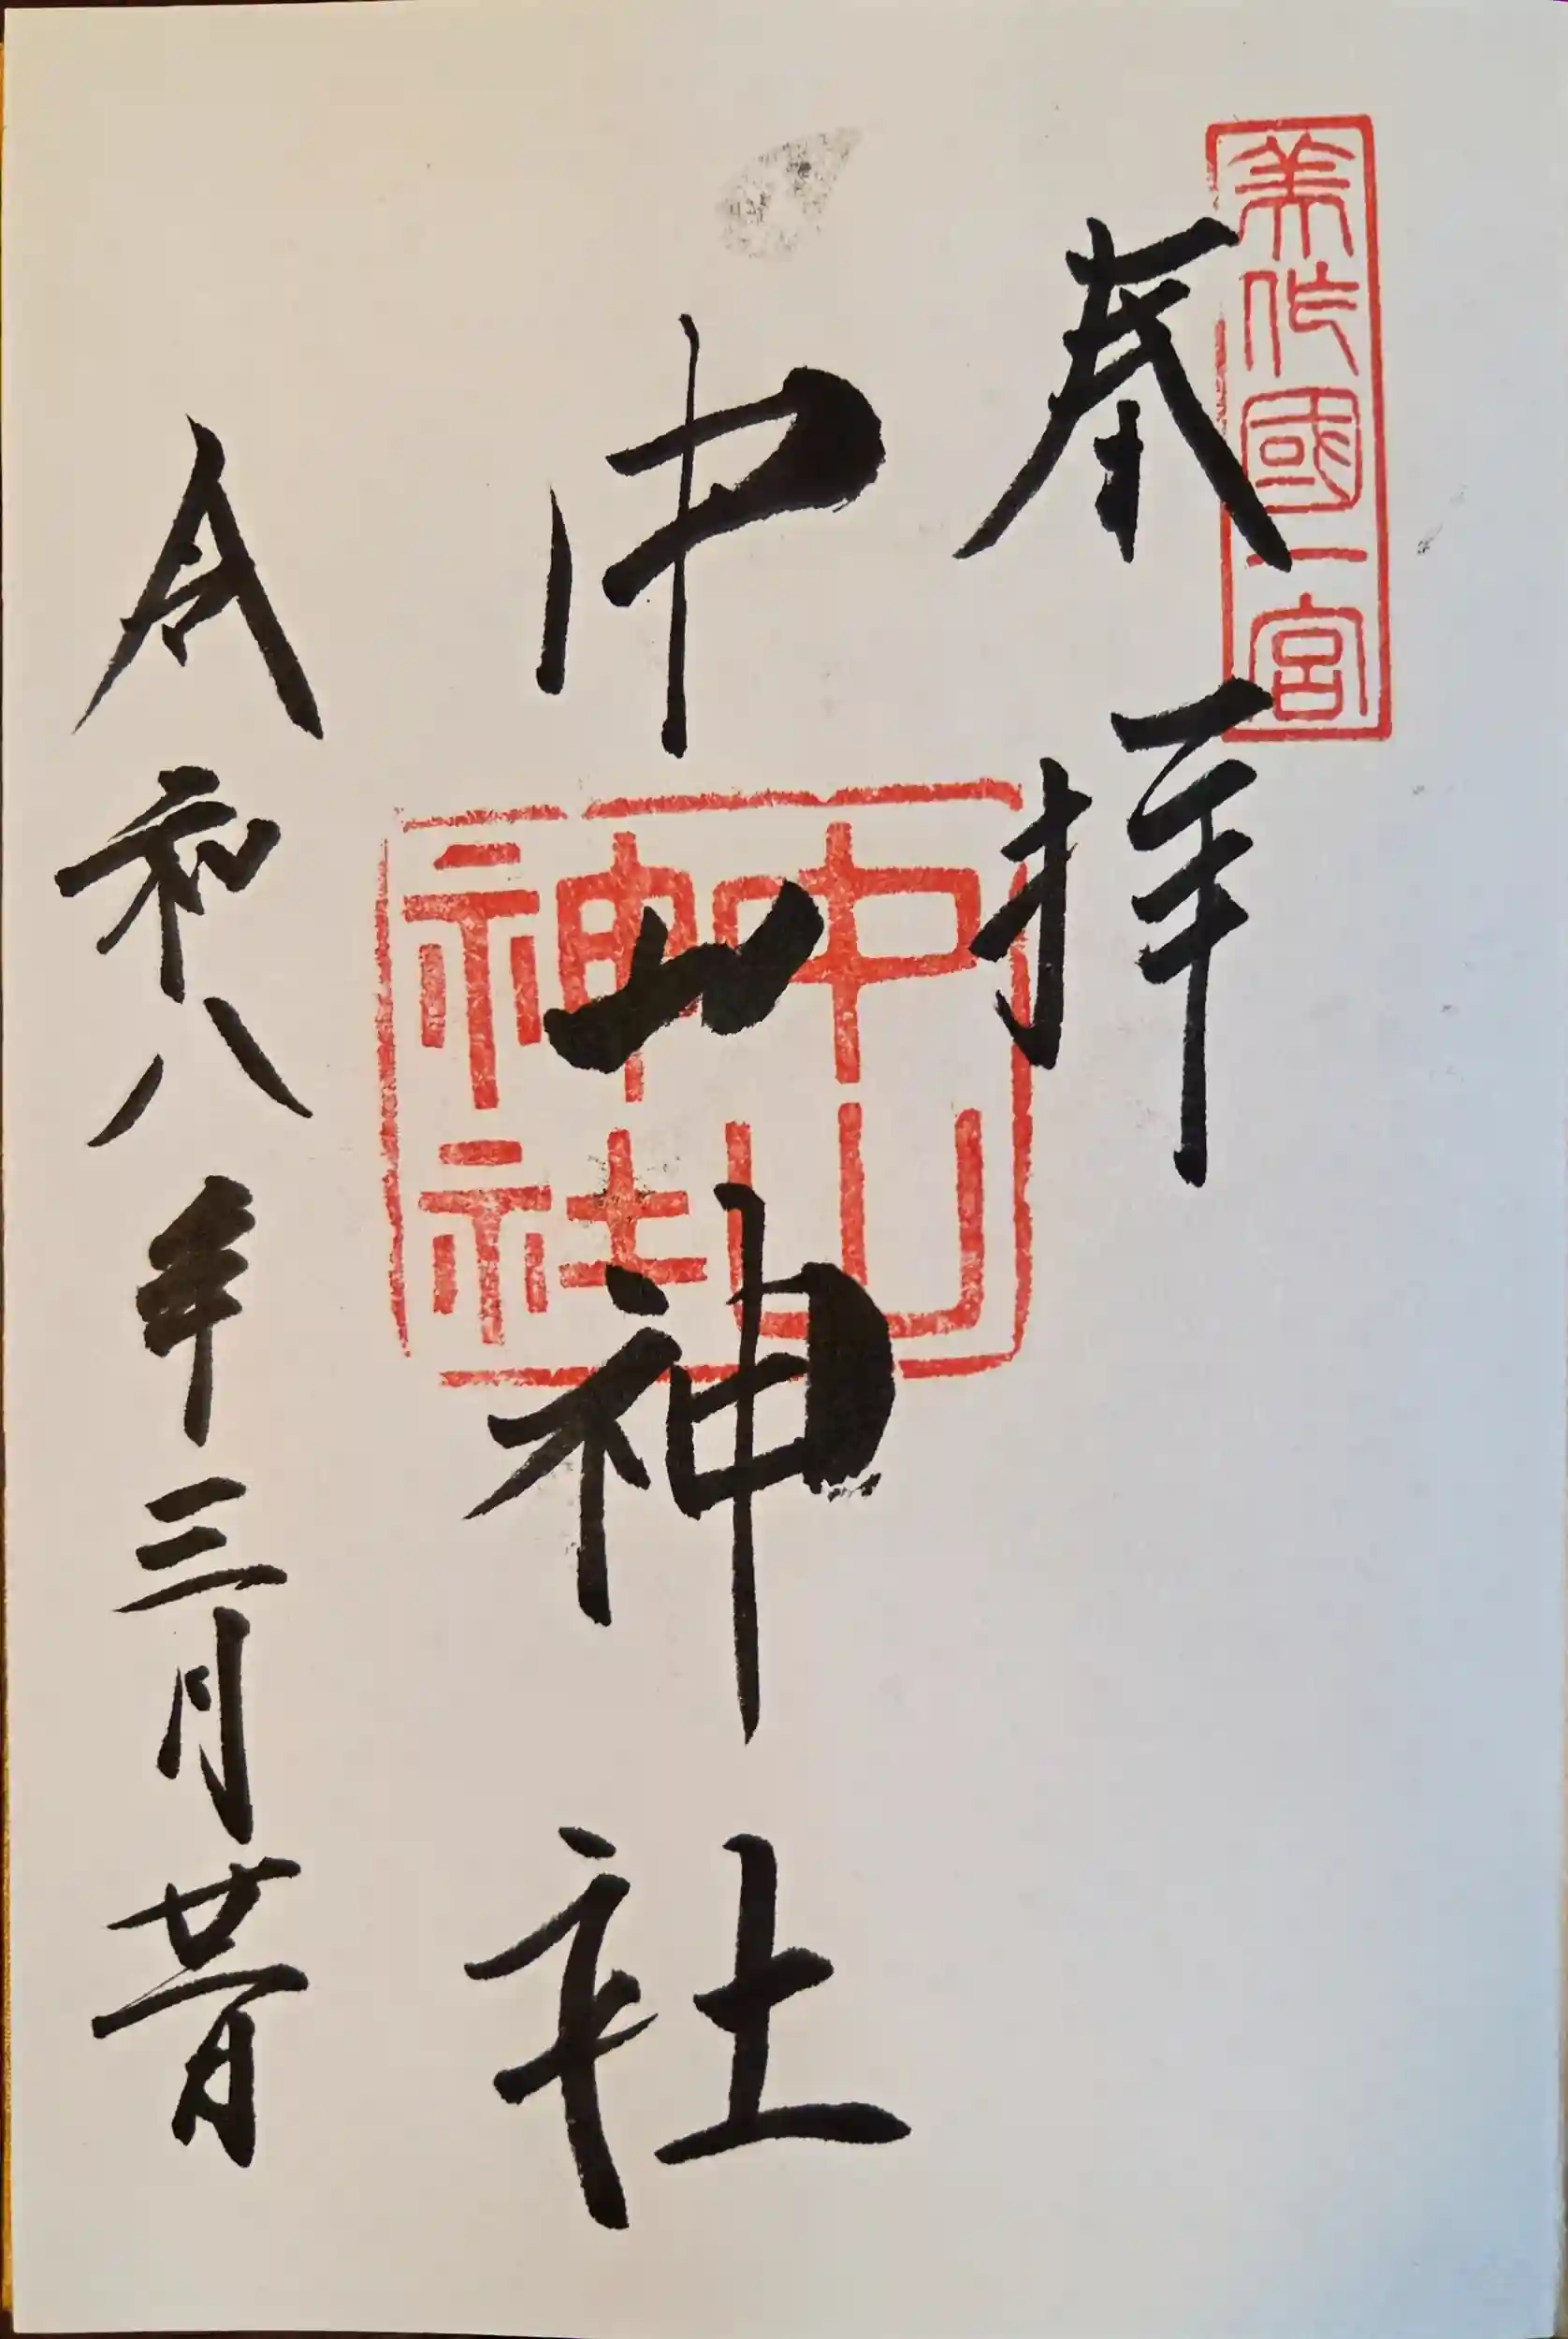 美作國一宮
奉拝
中山神社
中山神社
令和八年三月廿一日